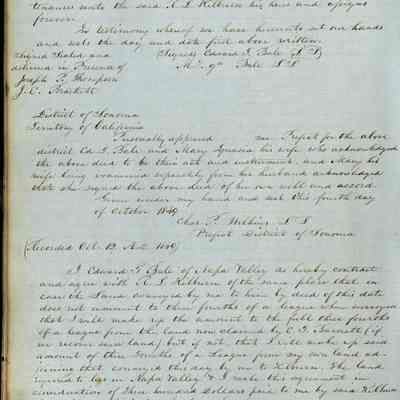 tenances unto the said R. L. Kilburn his heirs and assigns
forever.
In testimony whereof we have hereunto set our hands
and seals the day and date first above written.
Signed Sealed and (Signed) Edward T. Bale (L S)
delivered in Presence of Ma. Ya. Bale L S
Joseph P. Thompson
J. C. Bartlett
District of Sonoma
Territory of California
Personally appeared me Prefect for the above
district Ed T. Bale and Mary Ignacia his wife who acknowledged
the above deed to be their act and instrument, and Mary his
wife being examined separately from her husband acknowledged
that she signed the above deed of her own will and accord.
Given under my hand and seal this fourth day
of October 1849
Chas. P. Wilkins L S
Prefect District of Sonoma
(Recorded Oct. 12 A.D. 1849)
I Edward T Bale of Napa Valley do hereby contract
and agree with R. L Kilburn of the same place that in
case the Land conveyed by me to him by deed of this date
does not amount to three fourths of a league when surveyed
that I will make up the amount to the full three fourths
of a league from the land now claimed by C. T. (if
we recover said land) but if not, that I will make up said
amount of three fourths of a League from my own land ad-
joining that conveyed this day by me to Kilburn. The land
referred to lies in Napa Valley & I make this agreement in
consideration of Three hundred Dollars paid to me by said Kilburn